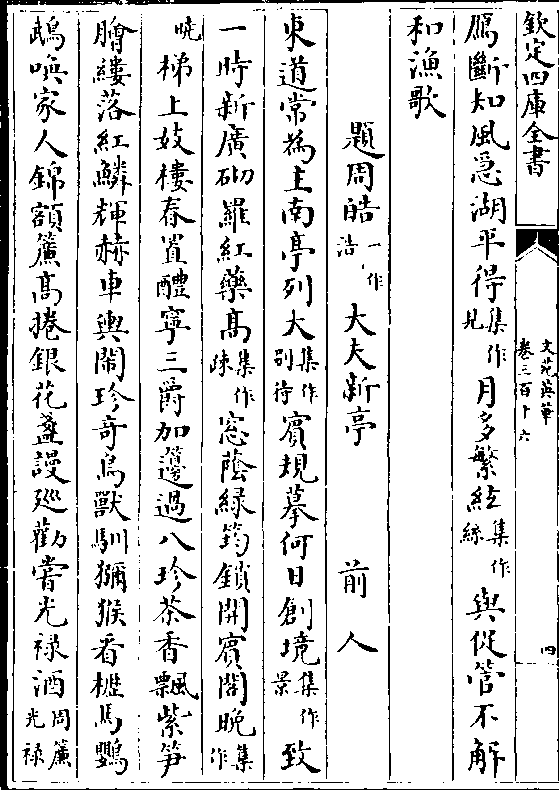 欽定四庫全書
文苑英華
卷三百十六
四
鴈斷知風急湖平得集作見月多繁絃集作絲與促管不解
和漁歌
題周皓一作浩大夫新亭 前人
東道常為主南亭列大集作別待賓規摹何日創境集作景致
一時新廣砌羅紅藥髙集作疎窓蔭緑筠鎖開賓閣晚集作
曉梯上妓樓春置醴寧三爵加籩過八珍茶香飄紫笋
膾縷落紅鱗輝赫車輿閙珍奇鳥獸馴獼猴看櫪馬鸚
鵡喚家人錦額簾髙捲銀花盞謾廵勸嘗光禄酒周簾光禄